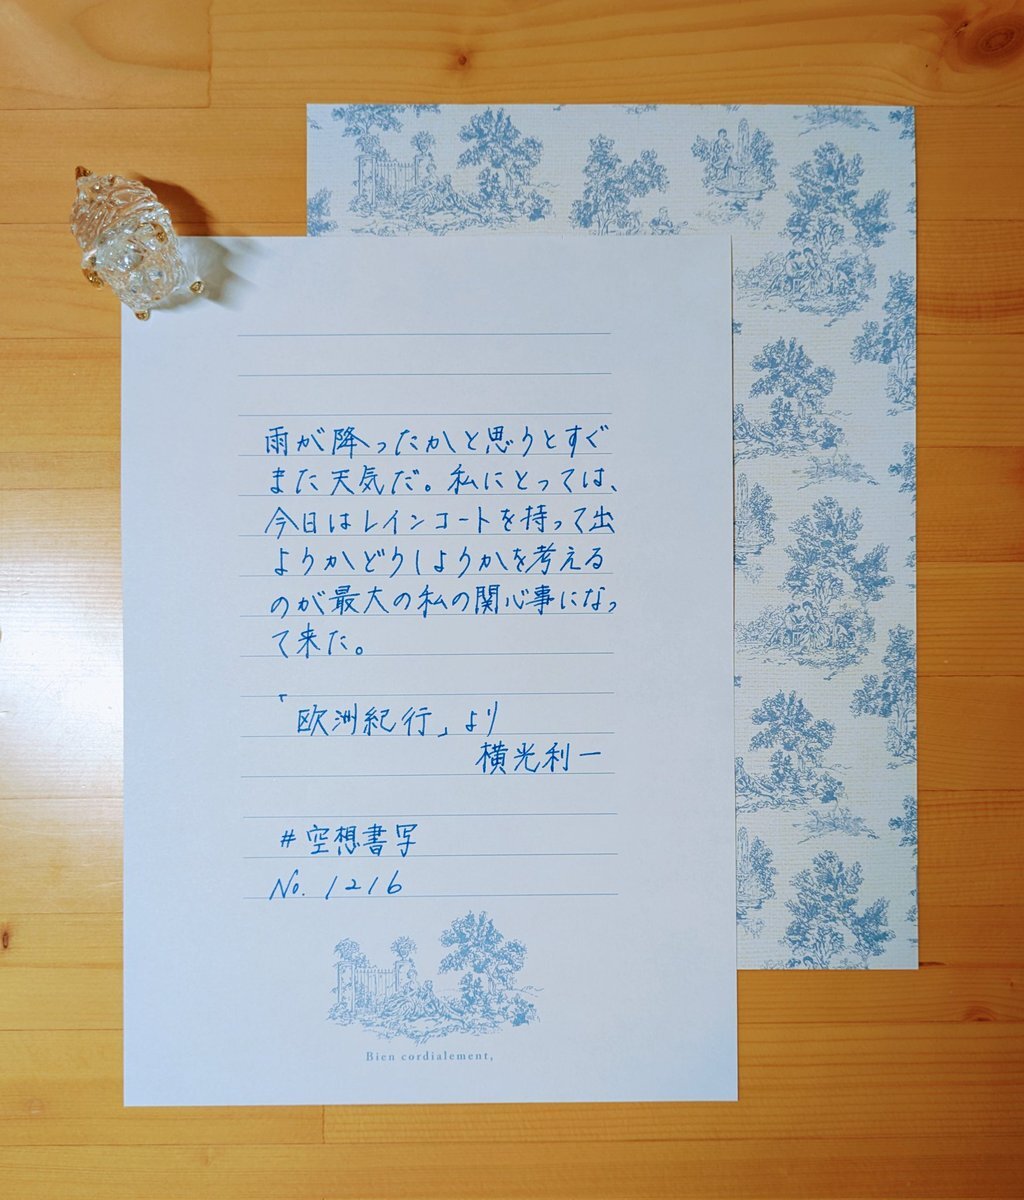 雨が降ったかと思うとすぐ
また天気だ。私にとっては、
今日はレインコートを持って出
ようかどうしようかを考える
のが最大の私の関心事になっ
て来た。
「欧洲紀行」より
横光利一
#空想書写
No. 1216
Bien cordialement,